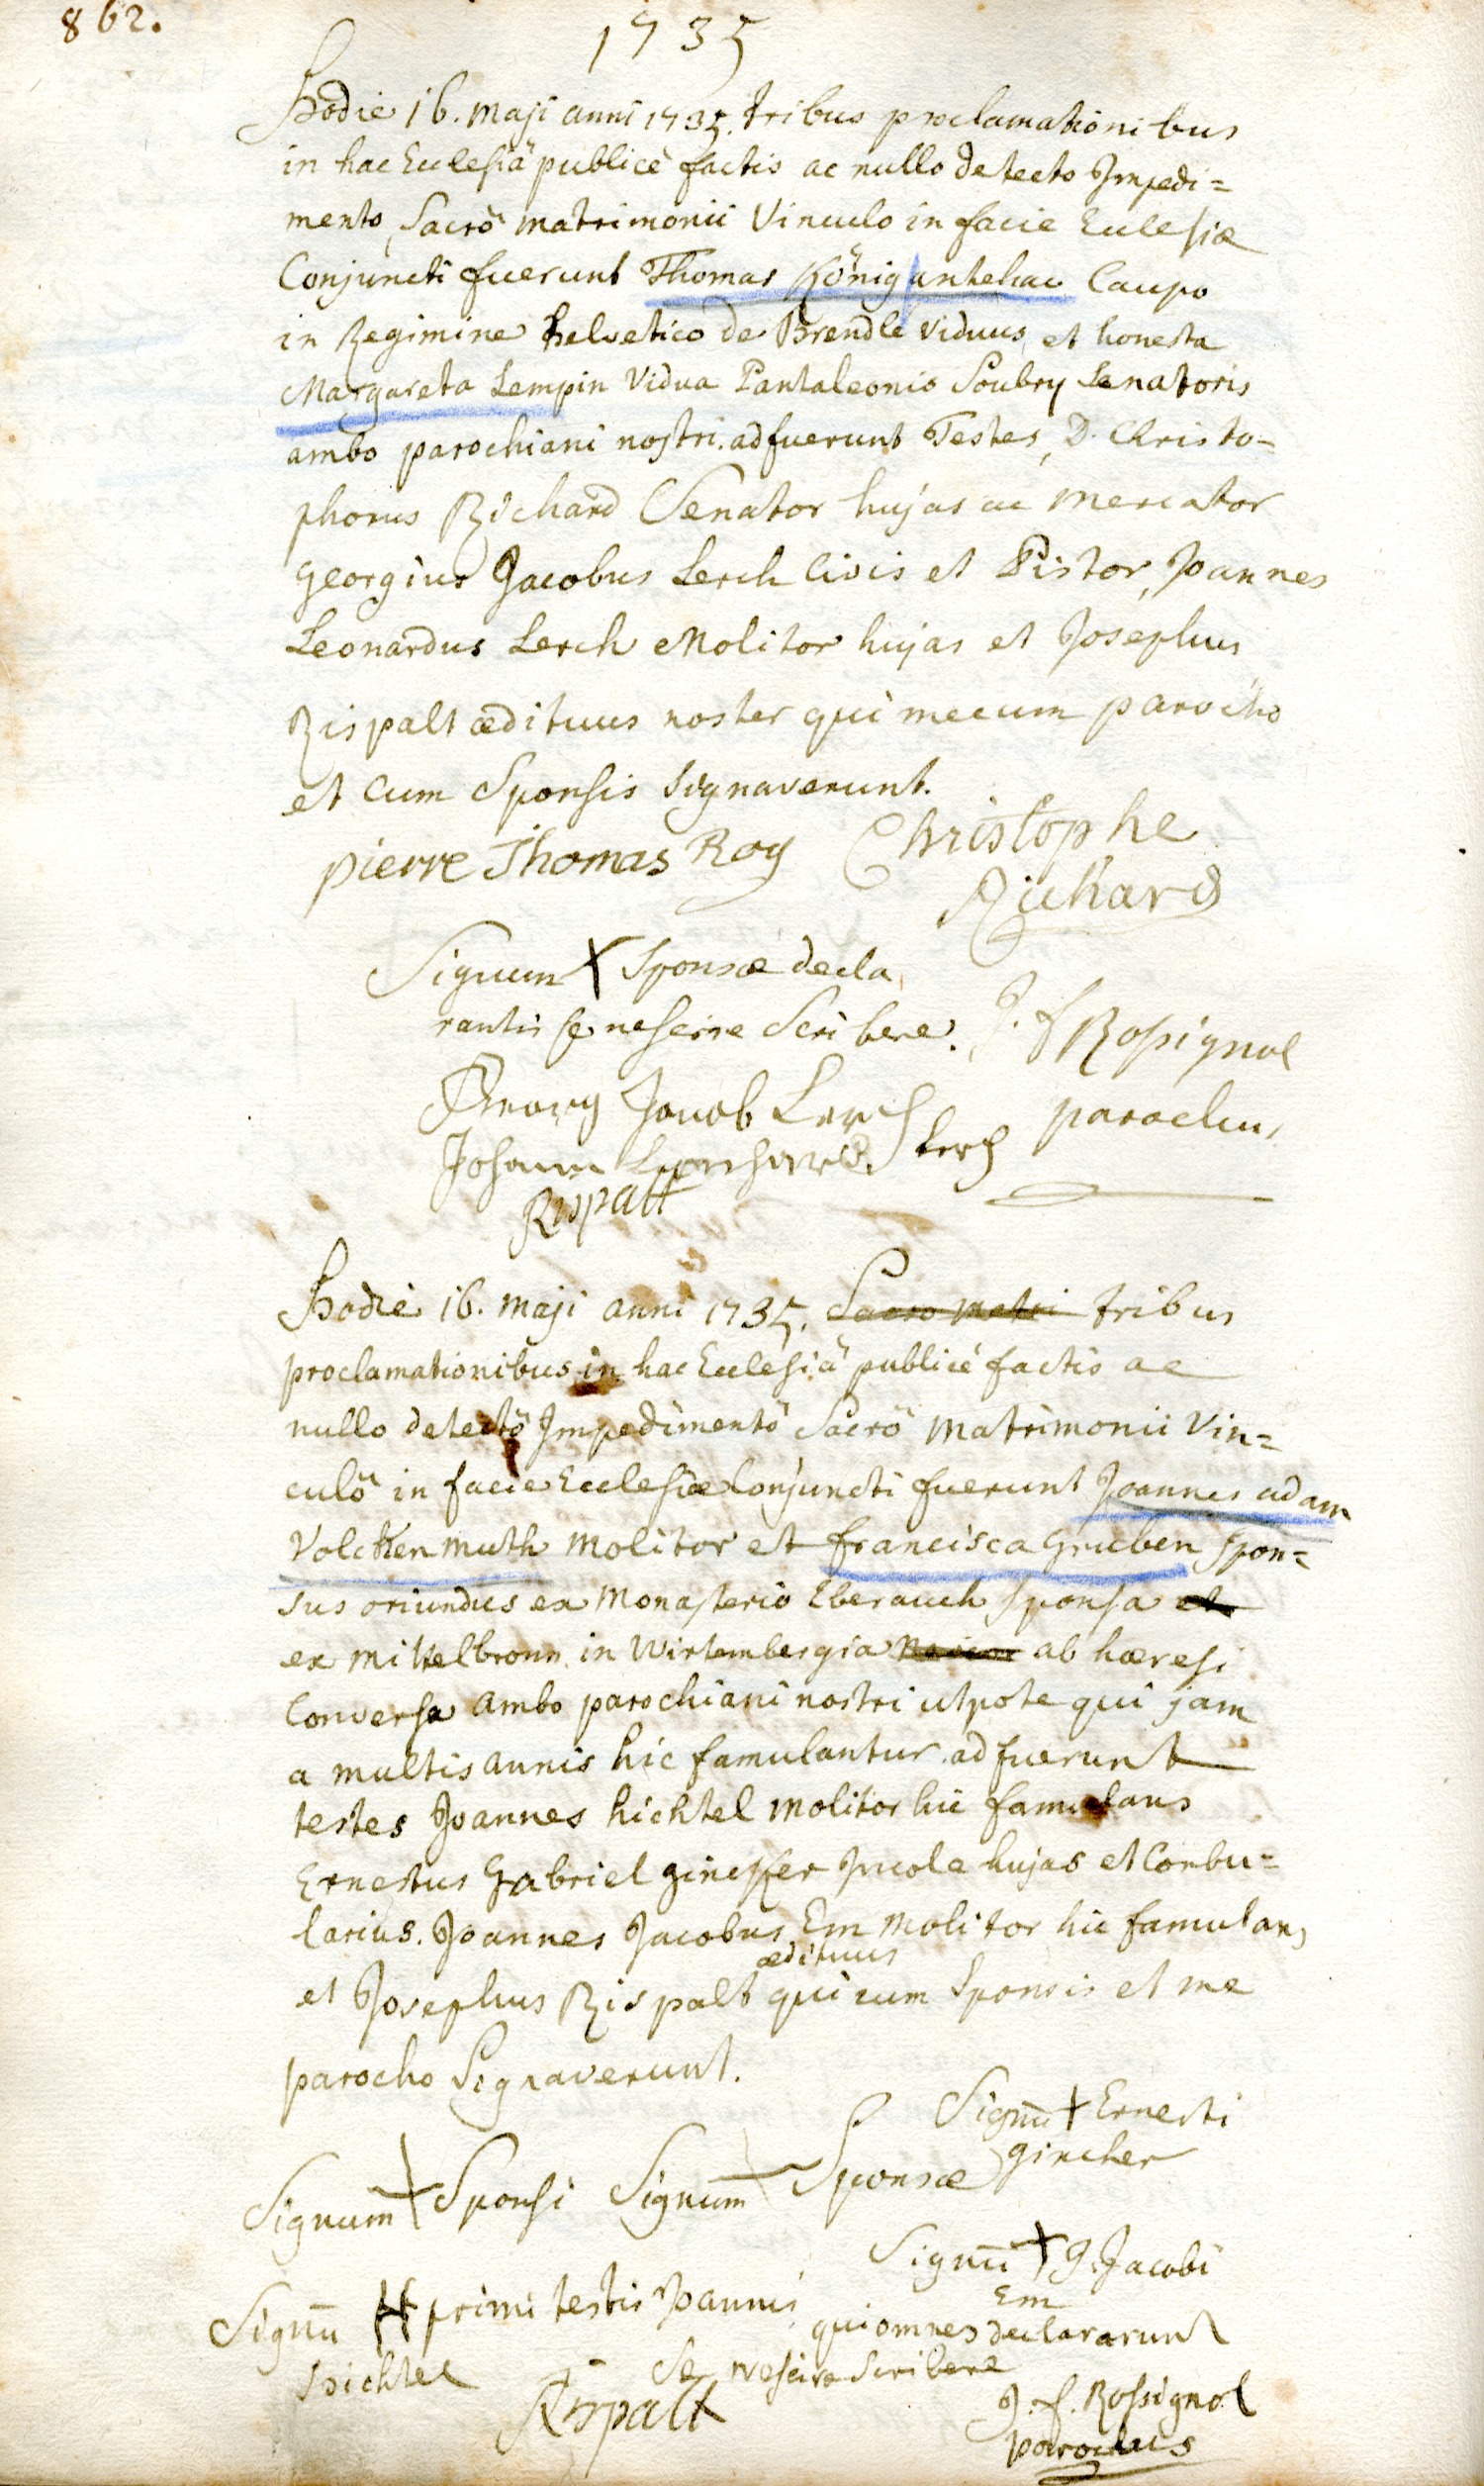 862.
1735
Hodie 16. Maji anni 1735. tribus proclamationibus
in hac Ecclesiâ publicè factis ac nullo detecto Impedi=
mento, Sacrô matrimonii Vinculo in facie Ecclesiæ
Conjuncti fuerunt Thomas König antehac Caupo
in Regimine helvetico de Brendle viduus, et honesta
Margareta Lempin Vidua Pantaleonis Soubry Senatoris
ambo parochiani nostri. adfuerunt Testes, D. Christo=
phorus Richard Senator hujas ac Mercator
Georgius Jacobus Lerch Civis et Pistor, Joannes
Leonardus Lerch Molitor hujas et Josephus
Rispalt ædituus noster qui mecum parocho
et Cum Sponsis signaverunt.
pierre Thomas Roy Christophe
Richard
Signum + Sponsæ decla
rantis se nescire Scribere.
J. f Rossignol
parochus
Georg Jacob Lerch
Johann Leonhard Lerch
Rispalt
Hodie 16. Maji anni 1735. Sacro Matri tribus
proclamationibus in hac Ecclesiâ publicè factis ac
nullo detectô Impedimentô Sacrô Matrimonii Vin=
culô in facie Ecclesiæ Conjuncti fuerunt Joannes adam
Volckenmuth Molitor et francisca Gruben spon=
sus oriundus ex Monasterio Eberauch sponsa et
ex Mittelbronn in Wirtembergia ab hæresi
Conversa ambo parochiani nostri utpote qui jam
a multis annis hic famulantur. adfuerunt
testes Joannes hichtel Molitor hic famulans
Ernestus Gabriel gincker Incola hujas et Corbu=
larius. Joannes Jacobus Em Molitor hic famulans
ædituus
et Josephus Rispalt qui cum Sponsis et me
parocho Signaverunt.
Signū + Ernesti
gincher
Signum + Sponsi Signum Sponsæ
Signū + J. Jacobi
Em
Signū H primi testis Joannis
hichtel
qui omnes declararunt
se nescire scribere
Rispalt
J. f. Rossignol
parochus